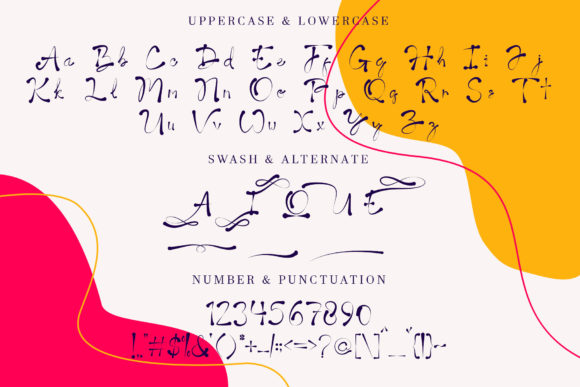 UPPERCASE & LOWERCASE
Aa Bb Cc Dd Ee Ff Gg Hh Ii Jj
Kk Ll Mm Nn Oo Pp Qq Rr Ss Tt
Uu Vv Ww Xx Yy Zz
SWASH & ALTERNATE
A I Q U E
NUMBER & PUNCTUATION
1234567890
!,"#$%&'()*+-./:;<=>?@[\]^_`{|}~